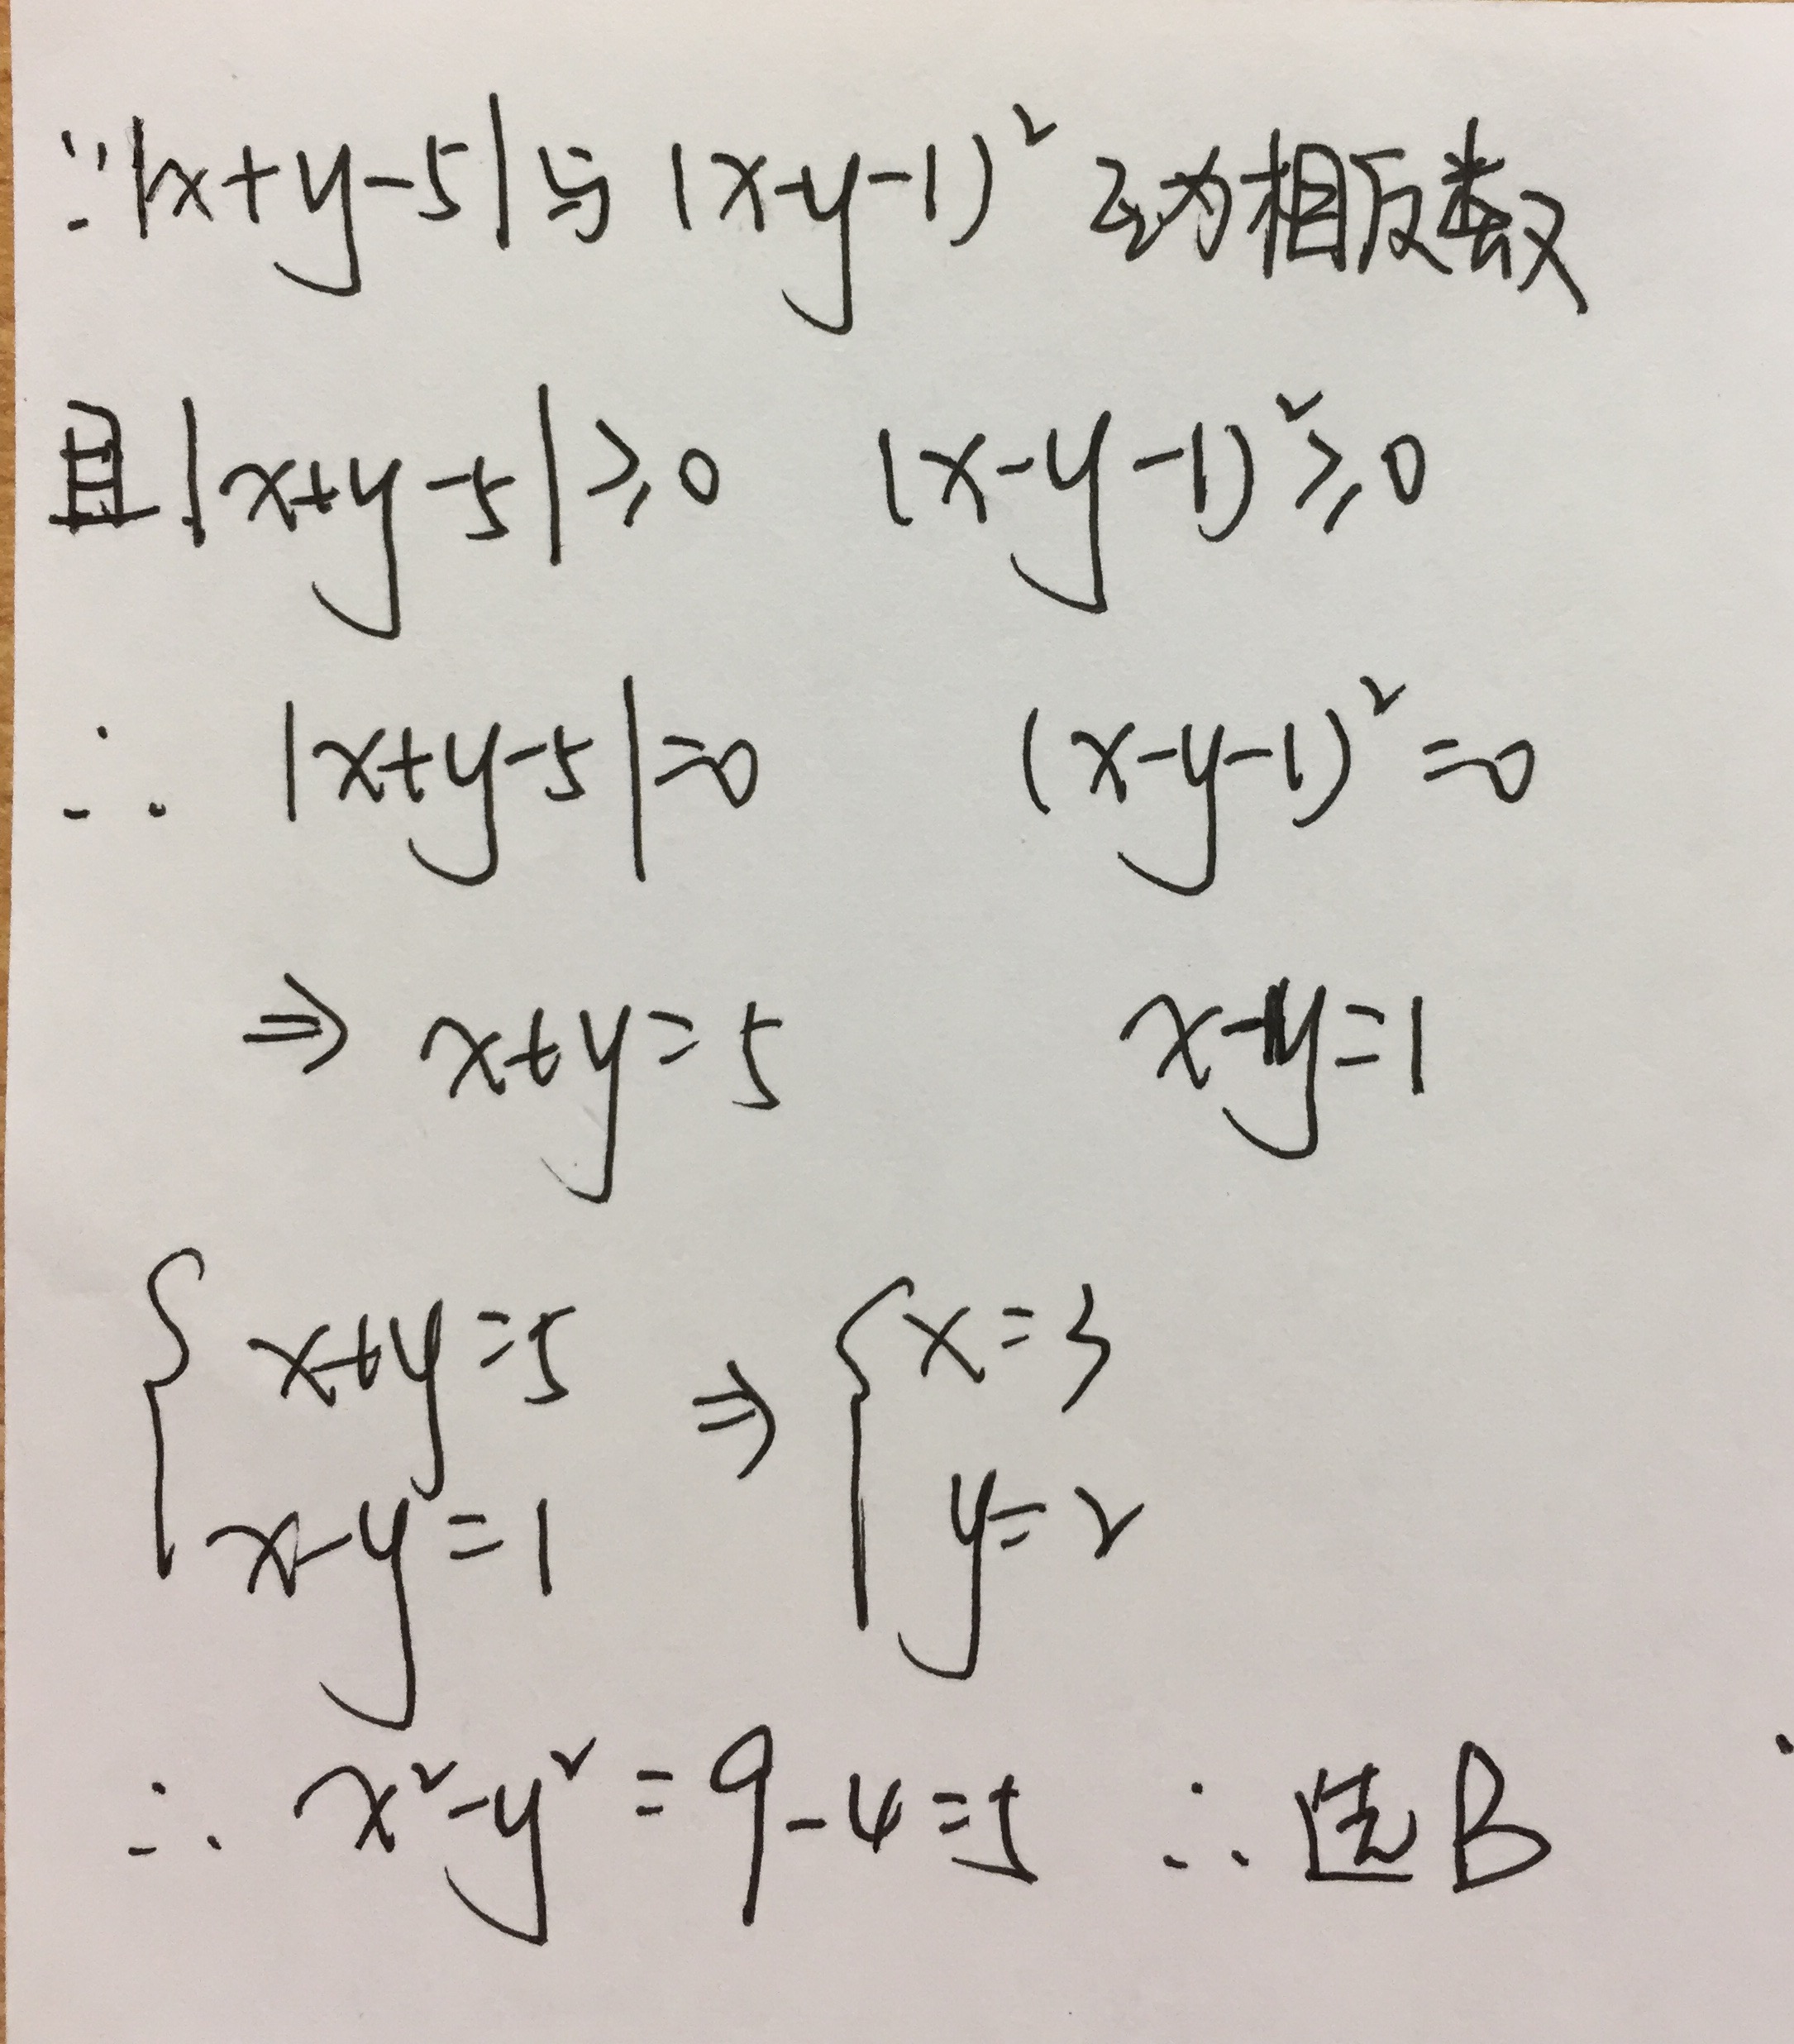 ∵|x+y-5|与(x-y-1)²互为相反数
且|x+y-5|≥0 (x-y-1)²≥0
∴ |x+y-5|=0 (x-y-1)²=0
⇒ x+y=5 x-y=1
{x+y=5 ⇒ {x=3
x-y=1 y=2
∴ x²-y²=9-4=5 ∴选B